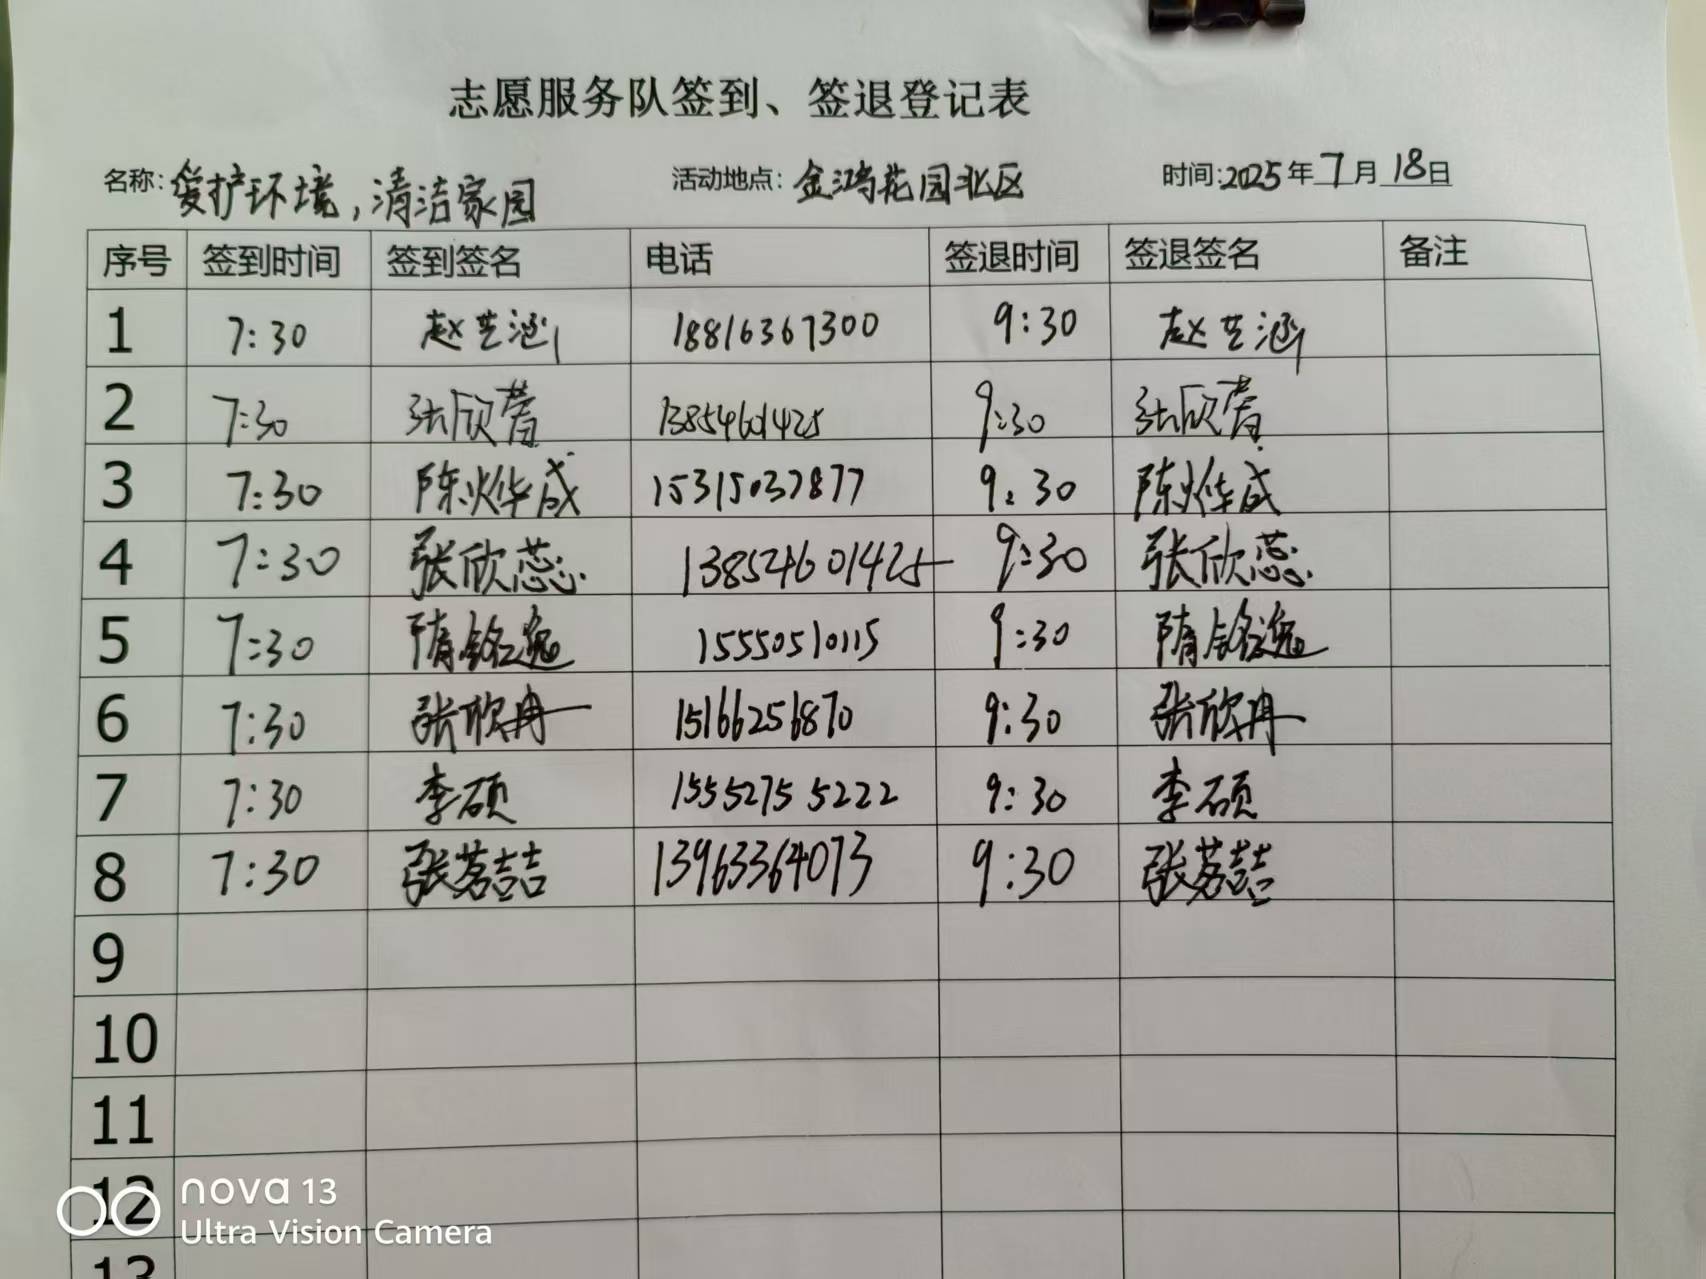 志愿服务队签到、签退登记表
名称:爱护环境,清洁家园 活动地点:金鸿花园北区 时间:2025年7月18日
序号 签到时间 签到签名 电话 签退时间 签退签名 备注
1 7:30 赵芸涵 18816367300 9:30 赵芸涵
2 7:30 张欣蕾 13854601425 9:30 张欣蕾
3 7:30 陈烨成 15315037877 9:30 陈烨成
4 7:30 张欣蕊 13854601425 9:30 张欣蕊
5 7:30 隋铭逸 15550510115 9:30 隋铭逸
6 7:30 张欣冉 15166256870 9:30 张欣冉
7 7:30 李硕 15552755222 9:30 李硕
8 7:30 张茗喆 13963364073 9:30 张茗喆
9
10
11
12
13
nova 13
Ultra Vision Camera